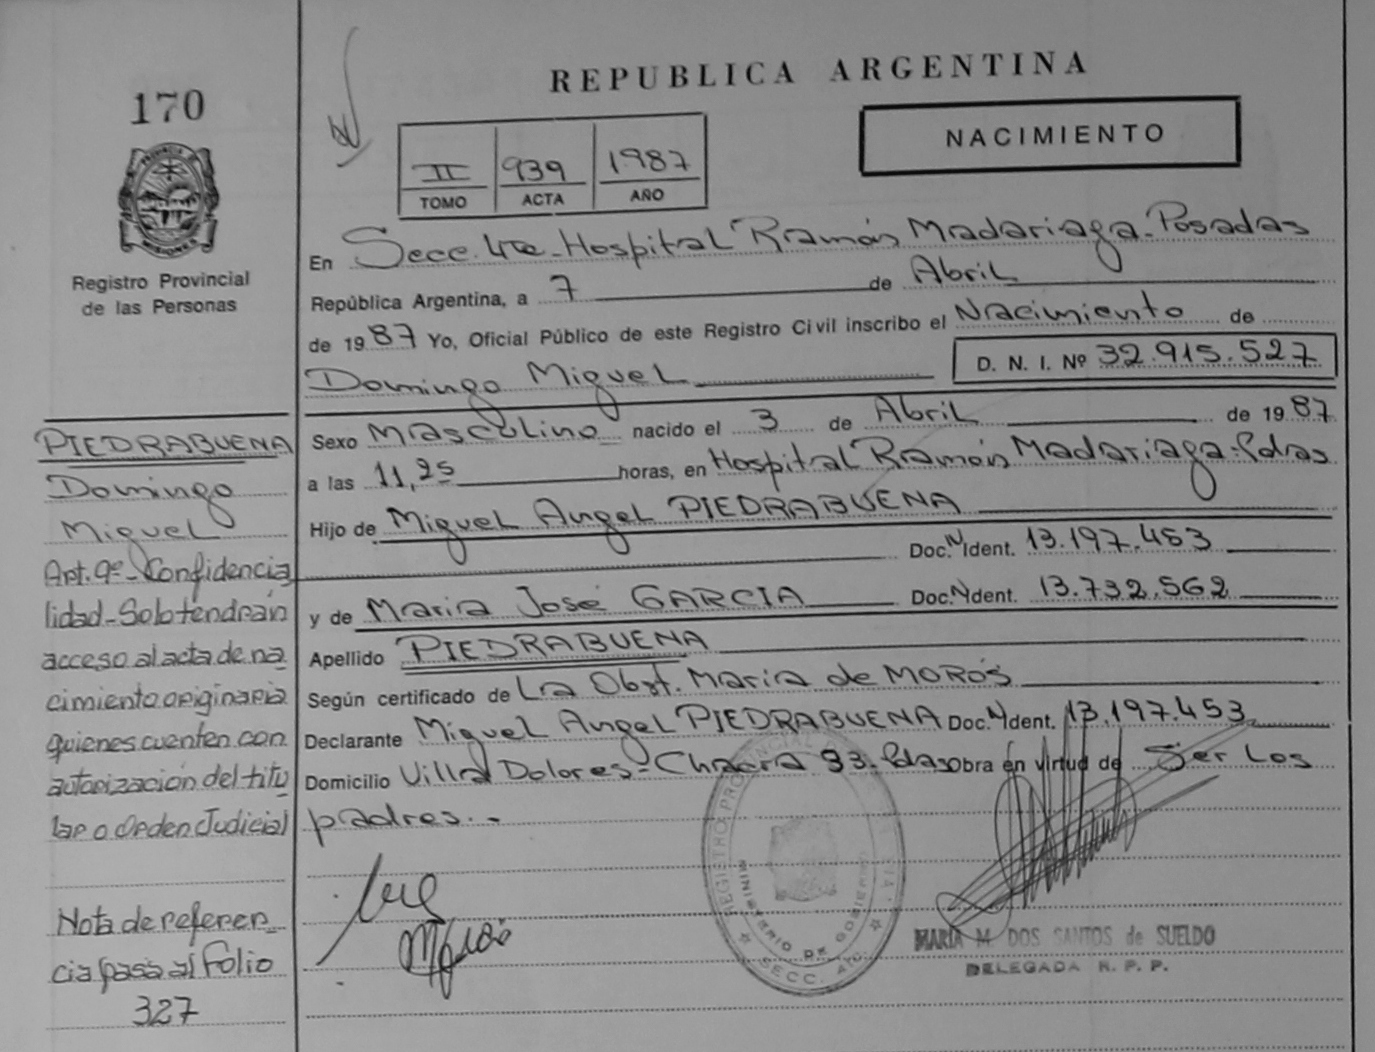 170
Registro Provincial
de las Personas
PIEDRABUENA
Domingo
Miguel
Art. 9º - Confidencia
lidad - Solo tendrán
acceso al acta de na
cimiento originaria
quienes cuenten con
autorización del titu
lar o Orden Judicial
Nota de referen
cia pasa al Folio
327
REPUBLICA ARGENTINA
NACIMIENTO
II 939 1987
TOMO ACTA AÑO
En Secc. 4ta - Hospital Ramón Madariaga - Posadas
República Argentina, a 7 de Abril
de 1987 Yo, Oficial Público de este Registro Civil inscribo el Nacimiento de
Domingo Miguel D. N. I. Nº 32.915.527
Sexo Masculino nacido el 3 de Abril de 1987
a las 11,25 horas, en Hospital Ramón Madariaga - Pdas
Hijo de Miguel Angel PIEDRABUENA
Doc. N Ident. 13.197.453
y de Maria José GARCIA Doc. N Ident. 13.732.562
Apellido PIEDRABUENA
Según certificado de La Obst. Maria de MOROS
Declarante Miguel Angel PIEDRABUENA Doc. N Ident. 13.197.453
Domicilio Villa Dolores - Chacra 93 - Pdas Obra en virtud de Ser Los
padres.-
REGISTRO PROVINCIAL
MINISTERIO DE GOBIERNO
SECC. 4ta.
MARIA M. DOS SANTOS de SUELDO
DELEGADA R. P. P.